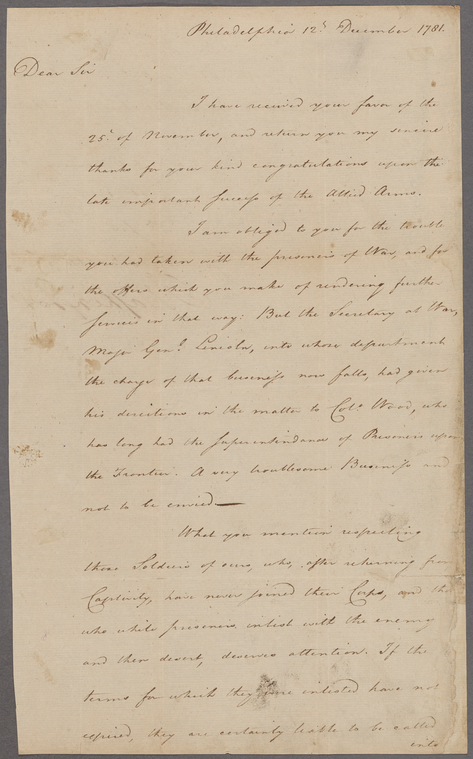 Philadelphia 12th December 1781.
Dear Sir
I have received your favor of the
25th of November, and return you my sincere
thanks for your kind congratulations upon the
late important success of the Allied Arms.
I am obliged to you for the trouble
you had taken with the prisoners of War, and for
the offers which you make of rendering further
services in that way: But the Secretary at War,
Major Genl. Lincoln, into whose department
the charge of that business now falls, had given
his directions in the matter to Colo. Wood, who
has long had the Superintendance of Prisoners upon
the Frontier. A very troublesome Business and
not to be envied.
What you mention respecting
those Soldiers of ours, who, after returning from
Captivity, have never joined their Corps, and the
who while prisoners inlist with the enemy
and then desert, deserves attention. If the
terms for which they were inlisted have not
expired, they are certainly liable to be called
into